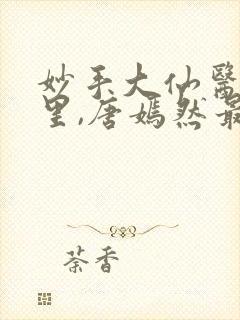 妙手大仙醫
里,唐嫣然最
荼香